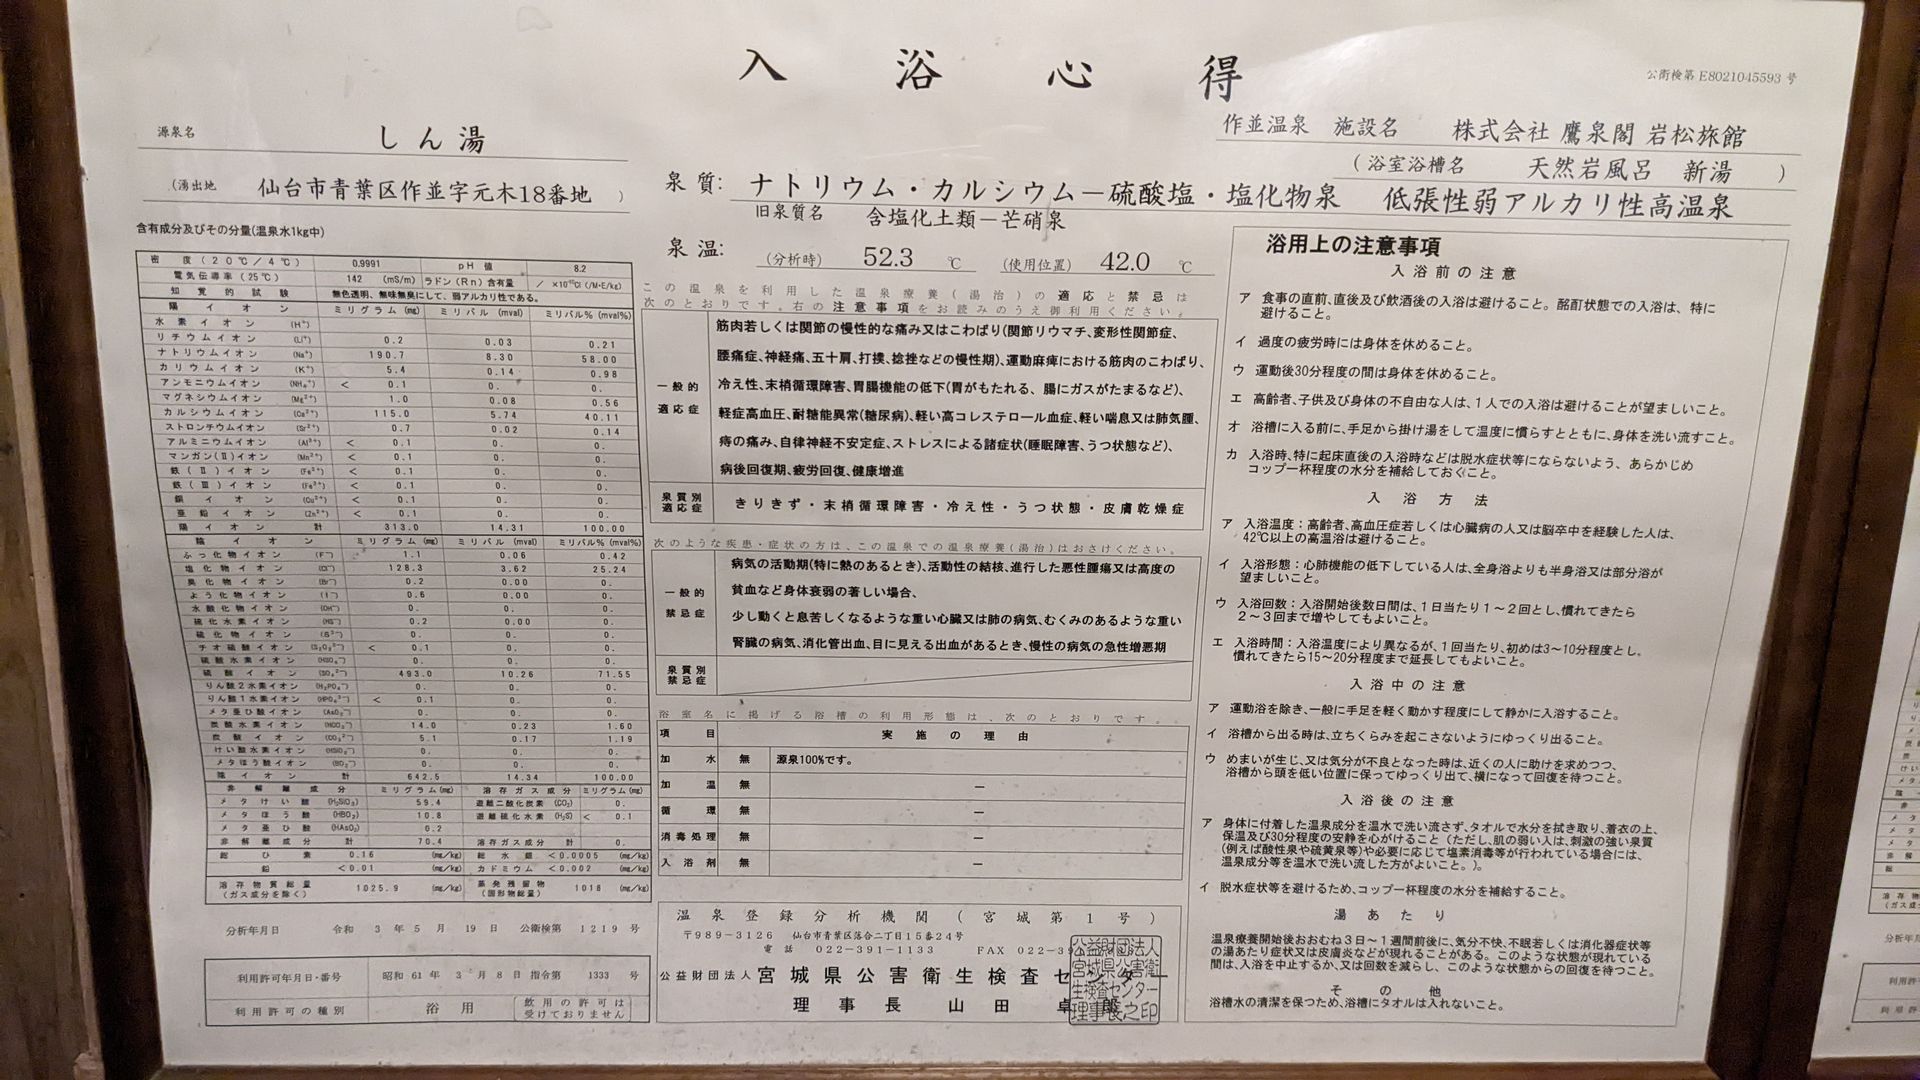 入浴心得
公衛検第 E8021045593 号
源泉名 しん湯
(湧出地 仙台市青葉区作並字元木18番地 )
作並温泉 施設名 株式会社 鷹泉閣 岩松旅館
( 浴室浴槽名 天然岩風呂 新湯 )
泉質: ナトリウム・カルシウム－硫酸塩・塩化物泉 低張性弱アルカリ性高温泉
旧泉質名 含塩化土類－芒硝泉
泉温: (分析時) 52.3 ℃ (使用位置) 42.0 ℃
含有成分及びその分量(温泉水1kg中)
密度(20℃/4℃) 0.9991 pH値 8.2
電気伝導率(25℃) 142 (mS/m) ラドン(Rn)含有量 / ×10⁻¹⁰Ci (/M・E/kg)
知覚的試験 無色透明、無味無臭にして、弱アルカリ性である。
陽イオン ミリグラム(mg) ミリバル(mval) ミリバル%(mval%)
水素イオン (H⁺)
リチウムイオン (Li⁺) 0.2 0.03 0.21
ナトリウムイオン (Na⁺) 190.7 8.30 58.00
カリウムイオン (K⁺) 5.4 0.14 0.98
アンモニウムイオン (NH₄⁺) < 0.1 0. 0.
マグネシウムイオン (Mg²⁺) 1.0 0.08 0.56
カルシウムイオン (Ca²⁺) 115.0 5.74 40.11
ストロンチウムイオン (Sr²⁺) 0.7 0.02 0.14
アルミニウムイオン (Al³⁺) < 0.1 0. 0.
マンガン(Ⅱ)イオン (Mn²⁺) < 0.1 0. 0.
鉄(Ⅱ)イオン (Fe²⁺) < 0.1 0. 0.
鉄(Ⅲ)イオン (Fe³⁺) < 0.1 0. 0.
銅イオン (Cu²⁺) < 0.1 0. 0.
亜鉛イオン (Zn²⁺) < 0.1 0. 0.
陽イオン計 313.0 14.31 100.00
陰イオン ミリグラム(mg) ミリバル(mval) ミリバル%(mval%)
ふっ化物イオン (F⁻) 1.1 0.06 0.42
塩化物イオン (Cl⁻) 128.3 3.62 25.24
臭化物イオン (Br⁻) 0.2 0.00 0.
よう化物イオン (I⁻) 0.6 0.00 0.
水酸化物イオン (OH⁻) 0. 0. 0.
硫化水素イオン (HS⁻) 0.2 0.00 0.
硫化物イオン (S²⁻) 0. 0. 0.
チオ硫酸イオン (S₂O₃²⁻) < 0.1 0. 0.
硫酸水素イオン (HSO₄⁻) 0. 0. 0.
硫酸イオン (SO₄²⁻) 493.0 10.26 71.55
りん酸2水素イオン (H₂PO₄⁻) 0. 0. 0.
りん酸1水素イオン (HPO₄²⁻) < 0.1 0. 0.
メタ亜ひ酸イオン (AsO₂⁻) 0. 0. 0.
炭酸水素イオン (HCO₃⁻) 14.0 0.23 1.60
炭酸イオン (CO₃²⁻) 5.1 0.17 1.19
けい酸水素イオン (HSiO₃⁻) 0. 0. 0.
メタほう酸イオン (BO₂⁻) 0. 0. 0.
陰イオン計 642.5 14.34 100.00
非解離成分 ミリグラム(mg) 溶存ガス成分 ミリグラム(mg)
メタけい酸 (H₂SiO₃) 59.4 遊離二酸化炭素 (CO₂) 0.
メタほう酸 (HBO₂) 10.8 遊離硫化水素 (H₂S) < 0.1
メタ亜ひ酸 (HAsO₂) 0.2
非解離成分計 70.4 溶存ガス成分計 0.
総ひ素 0.16 (mg/kg) 総水銀 <0.0005 (mg/kg)
鉛 <0.01 (mg/kg) カドミウム <0.002 (mg/kg)
溶存物質総量(ガス成分を除く) 1025.9 (mg/kg) 蒸発残留物(固形物総量) 1018 (mg/kg)
分析年月日 令和 3年5月19日 公衛検第 1219 号
利用許可年月日・番号 昭和61年3月8日 指令第 1333 号
利用許可の種別 浴用 [飲用の許可は受けておりません]
この温泉を利用した温泉療養(湯治)の適応と禁忌は
次のとおりです。右の注意事項をお読みのうえ御利用ください。
一般的適応症
筋肉若しくは関節の慢性的な痛み又はこわばり(関節リウマチ、変形性関節症、
腰痛症、神経痛、五十肩、打撲、捻挫などの慢性期)、運動麻痺における筋肉のこわばり、
冷え性、末梢循環障害、胃腸機能の低下(胃がもたれる、腸にガスがたまるなど)、
軽症高血圧、耐糖能異常(糖尿病)、軽い高コレステロール血症、軽い喘息又は肺気腫、
痔の痛み、自律神経不安定症、ストレスによる諸症状(睡眠障害、うつ状態など)、
病後回復期、疲労回復、健康増進
泉質別適応症 きりきず・末梢循環障害・冷え性・うつ状態・皮膚乾燥症
次のような疾患・症状の方は、この温泉での温泉療養(湯治)はおさけください。
一般的禁忌症
病気の活動期(特に熱のあるとき)、活動性の結核、進行した悪性腫瘍又は高度の
貧血など身体衰弱の著しい場合、
少し動くと息苦しくなるような重い心臓又は肺の病気、むくみのあるような重い
腎臓の病気、消化管出血、目に見える出血があるとき、慢性の病気の急性増悪期
泉質別禁忌症
浴室名に掲げる浴槽の利用形態は、次のとおりです。
項目 実施の理由
加水 無 源泉100%です。
加温 無 ―
循環 無 ―
消毒処理 無 ―
入浴剤 無 ―
温泉登録分析機関(宮城第1号)
〒989-3126 仙台市青葉区落合二丁目15番24号
電話 022-391-1133 FAX 022-39
公益財団法人 宮城県公害衛生検査センター
理事長 山田 卓郎
公益財団法人宮城県公害衛生検査センター理事長之印
浴用上の注意事項
入浴前の注意
ア 食事の直前、直後及び飲酒後の入浴は避けること。酩酊状態での入浴は、特に
避けること。
イ 過度の疲労時には身体を休めること。
ウ 運動後30分程度の間は身体を休めること。
エ 高齢者、子供及び身体の不自由な人は、1人での入浴は避けることが望ましいこと。
オ 浴槽に入る前に、手足から掛け湯をして温度に慣らすとともに、身体を洗い流すこと。
カ 入浴時、特に起床直後の入浴時などは脱水症状等にならないよう、あらかじめ
コップ一杯程度の水分を補給しておくこと。
入浴方法
ア 入浴温度：高齢者、高血圧症若しくは心臓病の人又は脳卒中を経験した人は、
42℃以上の高温浴は避けること。
イ 入浴形態：心肺機能の低下している人は、全身浴よりも半身浴又は部分浴が
望ましいこと。
ウ 入浴回数：入浴開始後数日間は、1日当たり1～2回とし、慣れてきたら
2～3回まで増やしてもよいこと。
エ 入浴時間：入浴温度により異なるが、1回当たり、初めは3～10分程度とし、
慣れてきたら15～20分程度まで延長してもよいこと。
入浴中の注意
ア 運動浴を除き、一般に手足を軽く動かす程度にして静かに入浴すること。
イ 浴槽から出る時は、立ちくらみを起こさないようにゆっくり出ること。
ウ めまいが生じ、又は気分が不良となった時は、近くの人に助けを求めつつ、
浴槽から頭を低い位置に保ってゆっくり出て、横になって回復を待つこと。
入浴後の注意
ア 身体に付着した温泉成分を温水で洗い流さず、タオルで水分を拭き取り、着衣の上、
保温及び30分程度の安静を心がけること(ただし、肌の弱い人は、刺激の強い泉質
(例えば酸性泉や硫黄泉等)や必要に応じて塩素消毒等が行われている場合には、
温泉成分等を温水で洗い流した方がよいこと。)。
イ 脱水症状等を避けるため、コップ一杯程度の水分を補給すること。
湯あたり
温泉療養開始後おおむね3日～1週間前後に、気分不快、不眠若しくは消化器症状等
の湯あたり症状又は皮膚炎などが現れることがある。このような状態が現れている
間は、入浴を中止するか、又は回数を減らし、このような状態からの回復を待つこと。
その他
浴槽水の清潔を保つため、浴槽にタオルは入れないこと。